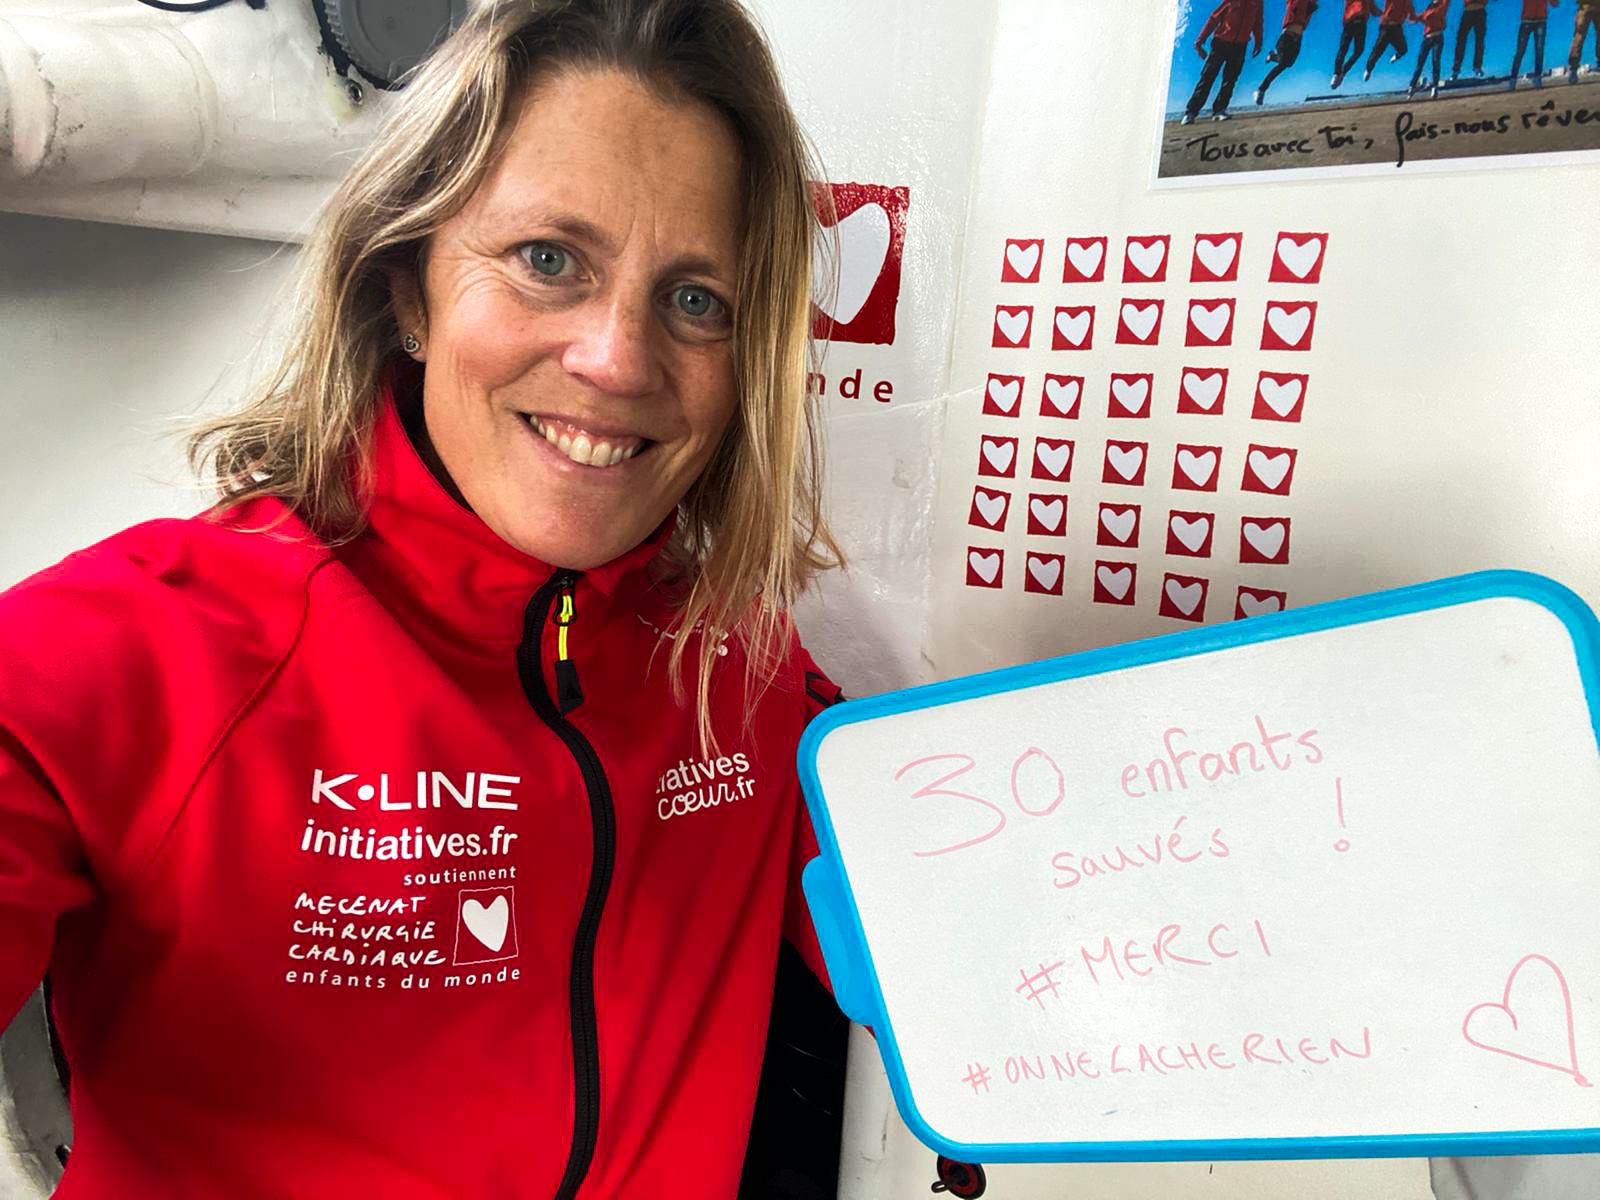 Tous avec Toi, fais-nous rêver
nde
K•LINE
initiatives.fr
soutiennent
MECENAT
CHiRURGiE
CARDiAQUE
enfants du monde
iatives
cœur.fr
30 enfants
sauvés !
#MERCI
#ONNELACHERIEN